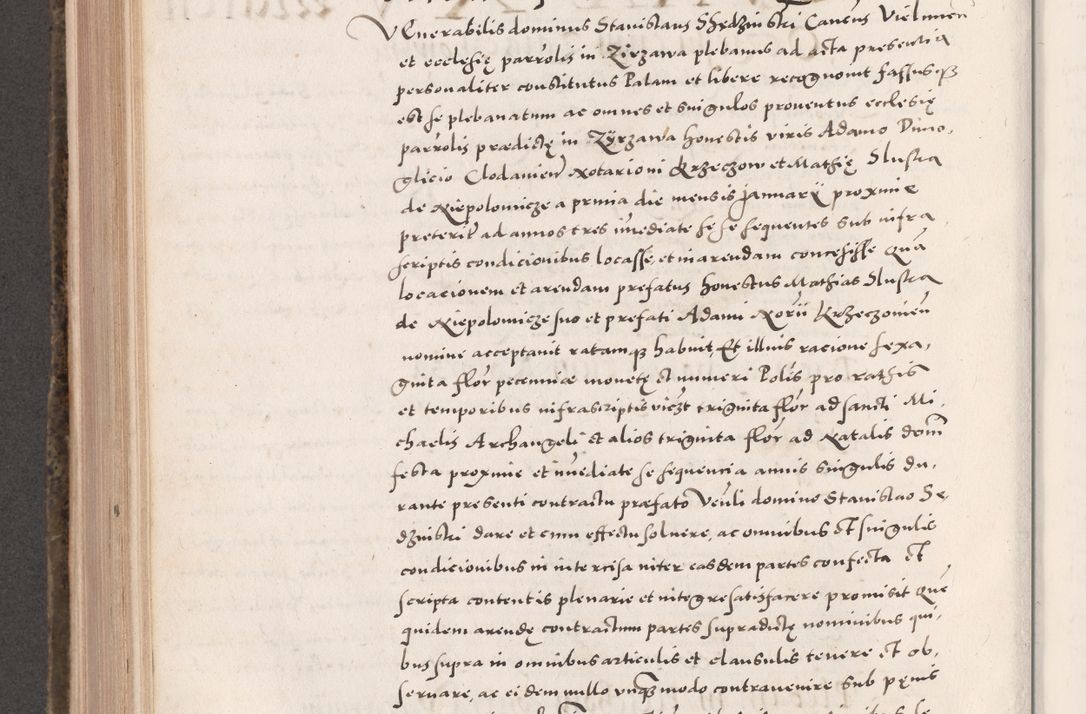 VEnerabilis dominus Stanislaus Shędzinski Cančus Vielunen
et ecclesię parrolis in Zirzawa plebanus ad acta presentia
personaliter constitutus Palam et libere recognovit fassusqȝ
est se plebanatum ac omnes et singulos proventus ecclesię
parrolis prædictę in Zÿrzawa honestis viris Adamo Dmo,
glicio Clodawien Notarioni Krzeczow et Mathię Slusca
de Niepolomicze a prima die mensis Januarÿ proxime
preterit ad annos tres imediate se se sequentes sub infra
scriptis condicionibus locasse, et in arendam concesisse Quā
locacionem et arendam prefatus honestus Mathias Slusca
de Niepolomicze suo et prefati Adami Norii Krzeczowien
nomine acceptavit ratamqȝ habuit, Et illius racione sexa,
ginta flor pecenniæ monetę et numeri Polis pro rathis
et temporibus infrascriptis viczt triginta flor ad sancti Mi,
chaelis Archangeli et alios triginta flor ad Natalis domi
festa proxime et imediate se sequencia annis singulis du,
rante presenti contractu præfato Venli domino Stanislao Se,
dzinski dare et cum effectu solvere, ac omnibus et singulis
condicionibus in intercisa inter easdem partes confecta et
scripta contentis plenarie et integre satisfacere promisit Que
quidem arendę contractum partes supradictę nominibus qui,
bus supra in omnibus articulis et clausulis tenere et ob,
servare, ac ei dem nullo unqȝ modo contravenire sub pęnis